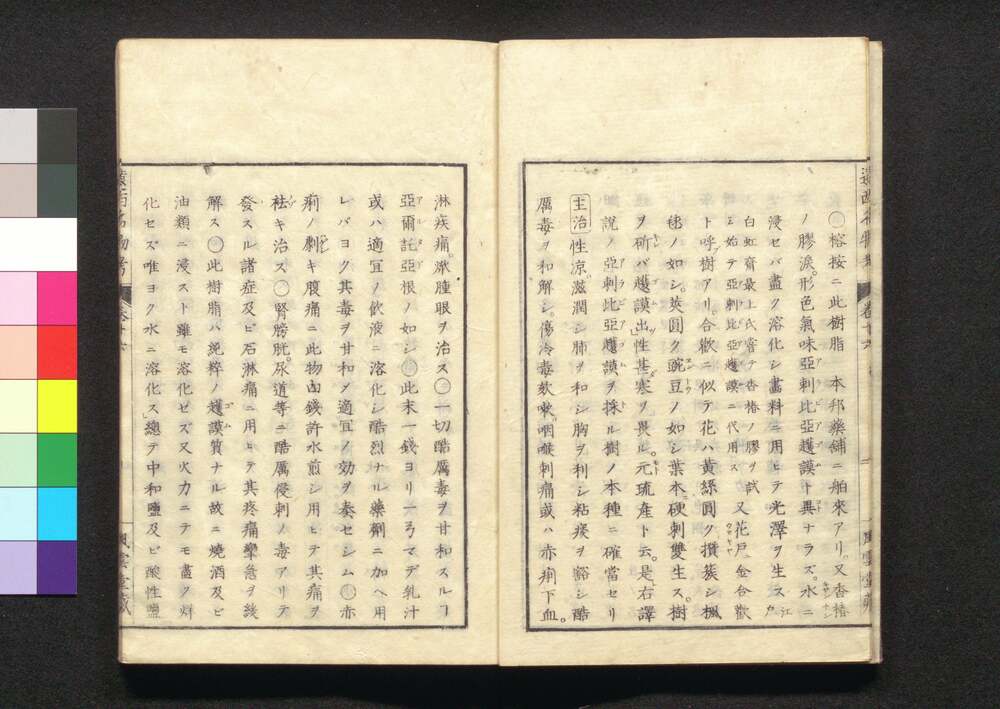 ○榕按ニ此樹脂 本邦藥鋪ニ舶來アリ又香椿
ノ膠淚形色氣味亞刺比亞護謨ト異ナラズ水ニ
浸セバ盡ク溶化シ畵料ニ用ヒテ光澤ヲ生ス
白虹齋最上氏嘗テ香椿ノ膠ヲ試
ミ始テ亞刺比亞護謨ニ代用ス
又花戶金合歡
ト呼樹アリ合歡ニ似テ花ハ黃綠圓ク攢簇シ楓
毬ノ如シ莢圓ク豌豆ノ如シ葉本硬刺雙生ス樹
ヲ斫バ護謨出性甚寒ヲ畏ル元琉產ト云是右譯
說ノ亞刺比亞護謨ヲ採ル樹ノ本種ニ確當セリ
主治 性凉滋潤シ肺ヲ和シ胸ヲ利シ粘痰ヲ豁シ酷
厲毒ヲ和解シ傷冷毒欬嗽咽喉刺痛或ハ赤痢下血
淋疾痛焮腫眼ヲ治ス○一切酷厲毒ヲ甘和スルヿ
亞爾託亞根ノ如シ○此末一錢ヨリ一弓マデ乳汁
或ハ適宜ノ飮液ニ溶化シ酷烈ナル藥劑ニ加ヘ用
レバヨク其毒ヲ甘和ヲ適宜ノ効ヲ奏セシム○赤
痢ノ劇キ腹痛ニ此物由錢許水煎シ用ヒテ其痛ヲ
祛キ治ス○腎膀胱尿道等ニ酷厲侵刺ノ毒アリテ
發スル諸症及ビ石淋痛ニ用ヒテ其疼痛攣急ヲ緩
解ス○此樹脂ハ純粹ノ護謨質ナル故ニ燒酒及ビ
油類ニ浸スト雖モ溶化セズ又火力ニテモ盡ク烊
化セズ唯ヨク水ニ溶化ス總テ中和鹽及ビ酸性鹽